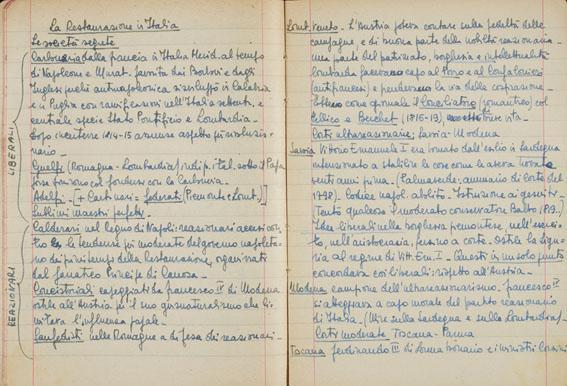 La Restaurazione in Italia
Le società segrete
LIBERALI
Carboneria dalla francia in Italia Merid. al tempo
di Napoleone e Murat. favorita dai Borboni e dagli
Inglesi perché antinapoleonica si sviluppò in Calabria
e in Puglia con ramificazioni nell'Italia settent. e
centrale specie Stato Pontificio e Lombardia.
Dopo il 1814-15 assunse aspetto più
nario.
Guelfi (Romagna - Lombardia) indip. ital. sotto il Papa
forse finirono col fondersi con la Carboneria.
Adelfi [+ Carbonari = federati (Piemonte e Lomb.)]
Sublimi maestri perfetti.
REAZIONARI
Calderari nel regno di Napoli: reazionari accesi con
tro le tendenze più moderate del governo napoleta
no dei primi tempi della Restaurazione, organizzati
dal fanatico Principe di Canosa.
Concistoriali capeggiati da francesco IV di Modena
ostile all'Austria per il suo giurisnaturalismo che li
mitava l'influenza papale.
Sanfedisti nelle Romagne a difesa dei reazionari.
Lomb. Veneto. L'Austria poteva contare sulla fedeltà delle
campagne e di buona parte della nobiltà reazionaria.
una parte del patriziato, borghesia e intellettualità
lombarda facevano capo al Porro e al Confalonieri
(antifrancesi) e prenderanno la via della cospirazione.
Ebbero come giornale il Conciliatore (romantico) col
Pellico e Berchet (1818-19) vita.
Corti ultrareazionarie: Savoia - Modena
Savoia Vittorio Emanuele I era tornato dall'esilio in Sardegna
intenzionato a stabilire le cose come le aveva
venti anni prima. (Palmaverde: annuario di Corte del
1798). Codice napol. abolito. Istruzione ai gesuiti.
Tentò qualcosa il moderato conservatore Balbo 1819.
Idee liberali nella borghesia piemontese, nell'eserci
to, nell'aristocrazia, persino a corte. Ostile la Ligu
ria al regime di Vitt. Em. I. Questi in un solo punto
concordava coi liberali: rispetto all'Austria.
Modena campione dell'ultrareazionarismo. francesco IV
si atteggiava a capo morale del partito reazionario
di Italia. (Mire sulla Sardegna e sulla Lombardia)
Corti moderate Toscana - Parma
Toscana ferdinando III di Lorena bonario e i ministri Corsini